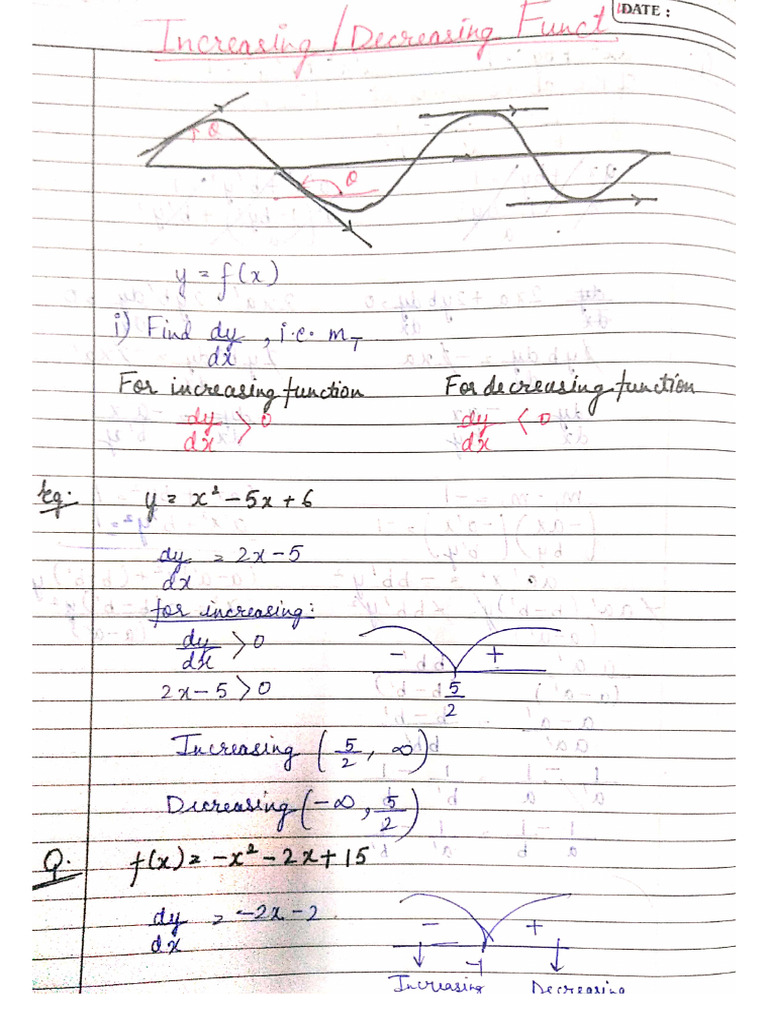 DATE :
Increasing / Decreasing Funct
θ
θ
y = f(x)
i) Find dy/dx , i.e. m_T
For increasing function    For decreasing function
dy/dx > 0    dy/dx < 0
Eg:- y = x² - 5x + 6
dy/dx = 2x - 5
for increasing:
dy/dx > 0
- +
2x - 5 > 0    5/2
Increasing (5/2, ∞)
Decreasing (-∞, 5/2)
Q. f(x) = -x² - 2x + 15
dy/dx = -2x - 2
- +
-1
Increasing    Decreasing